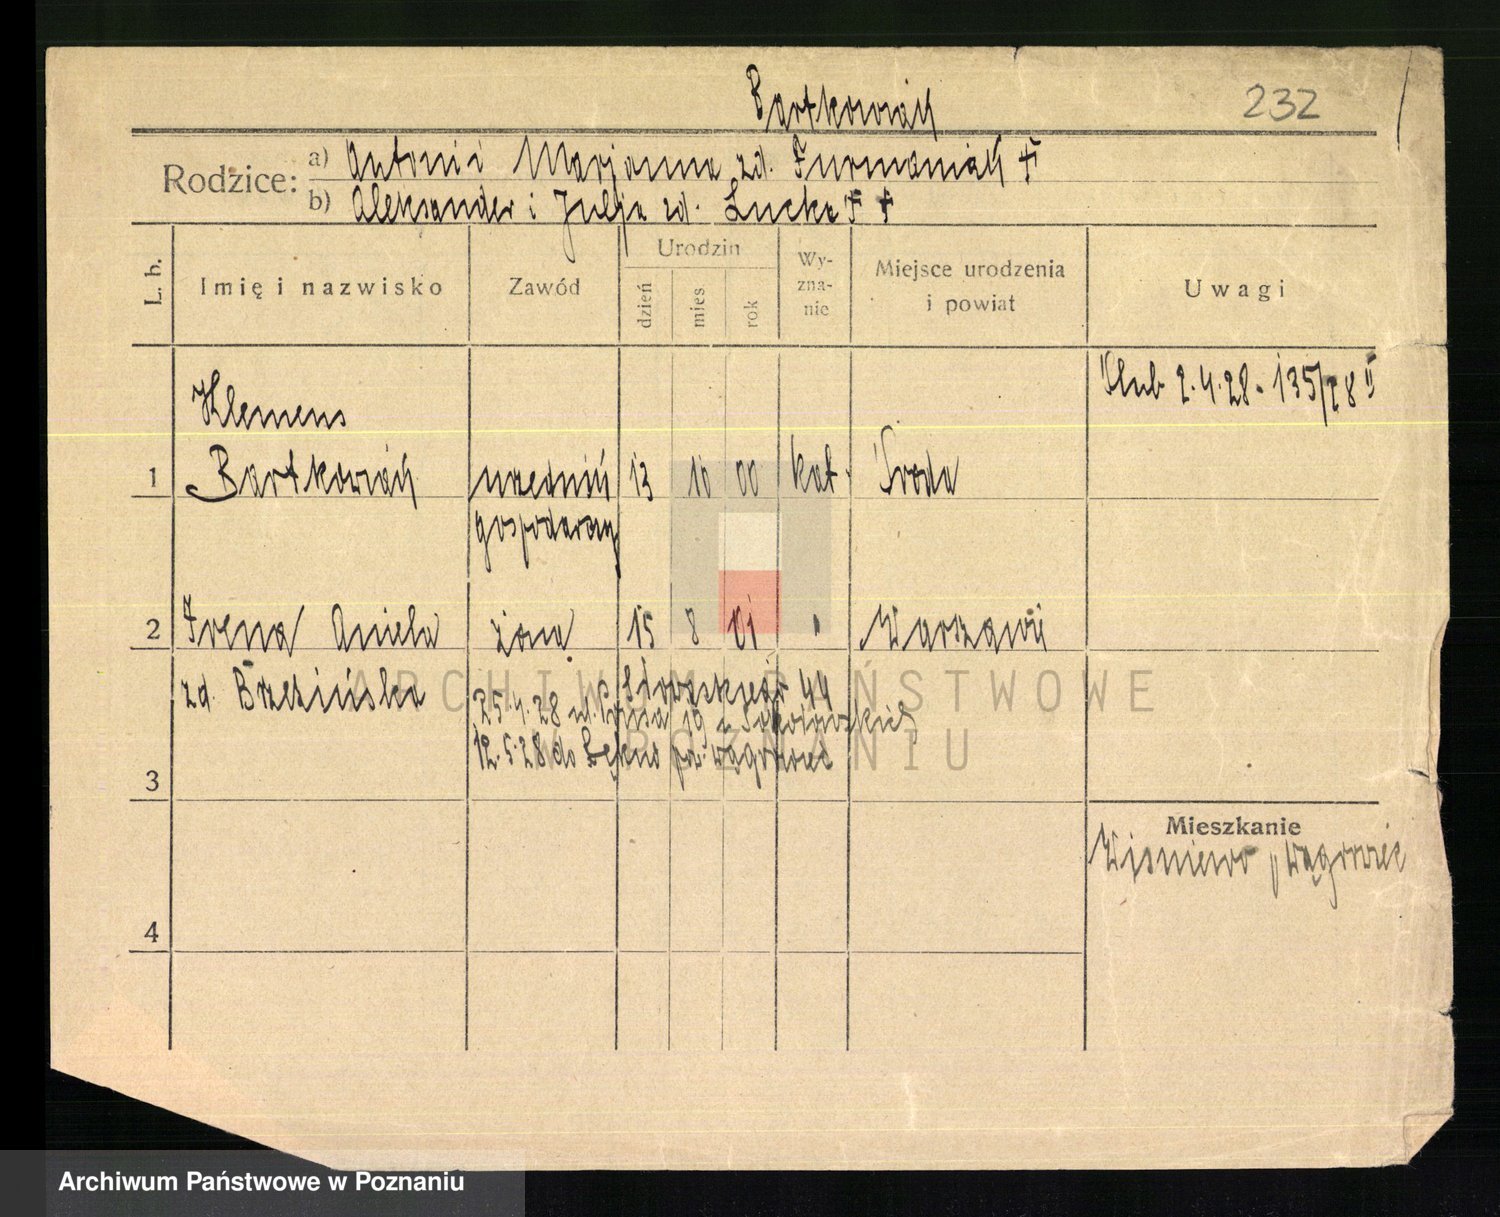 Bartkowiak
232
Rodzice:
a) Antoni i Marjanna zd. Furmaniak ++
b) Aleksander i Julja zd. Lucka ++
L. b.
Imię i nazwisko
Zawód
Urodzin
dzień
mies
rok
Wy-
zna-
nie
Miejsce urodzenia
i powiat
Uwagi
Ślub 2.4.28 - 135/28 II
Klemens
1 Bartkowiak urzędnik 13 10 00 kat. Środa
gospodarczy
2 Irena Aniela żona 15 8 01 " Warszawa
zd. Brzezińska
44
25.4.28 ul. 19
12.5.28 do Łękno pow. Wągrowiec
3
Mieszkanie
Wiśniewo p Wągrowiec
4
ARCHIWUM PAŃSTWOWE
W POZNANIU
Archiwum Państwowe w Poznaniu